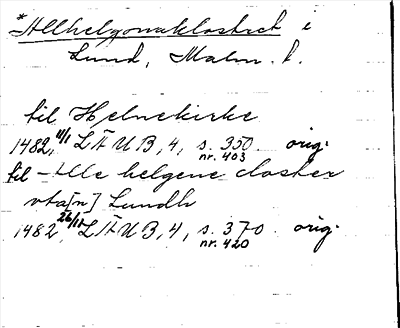 *Allhelgonaklostret i
Lund, Malm. l.
til Helnekirke
1482, 11/1 LÄUB, 4, s. 350. orig.
nr. 403
til Alle helgene closter
vta[n] Lundh
1482, 26/11 LÄUB, 4, s. 370. orig.
nr. 420